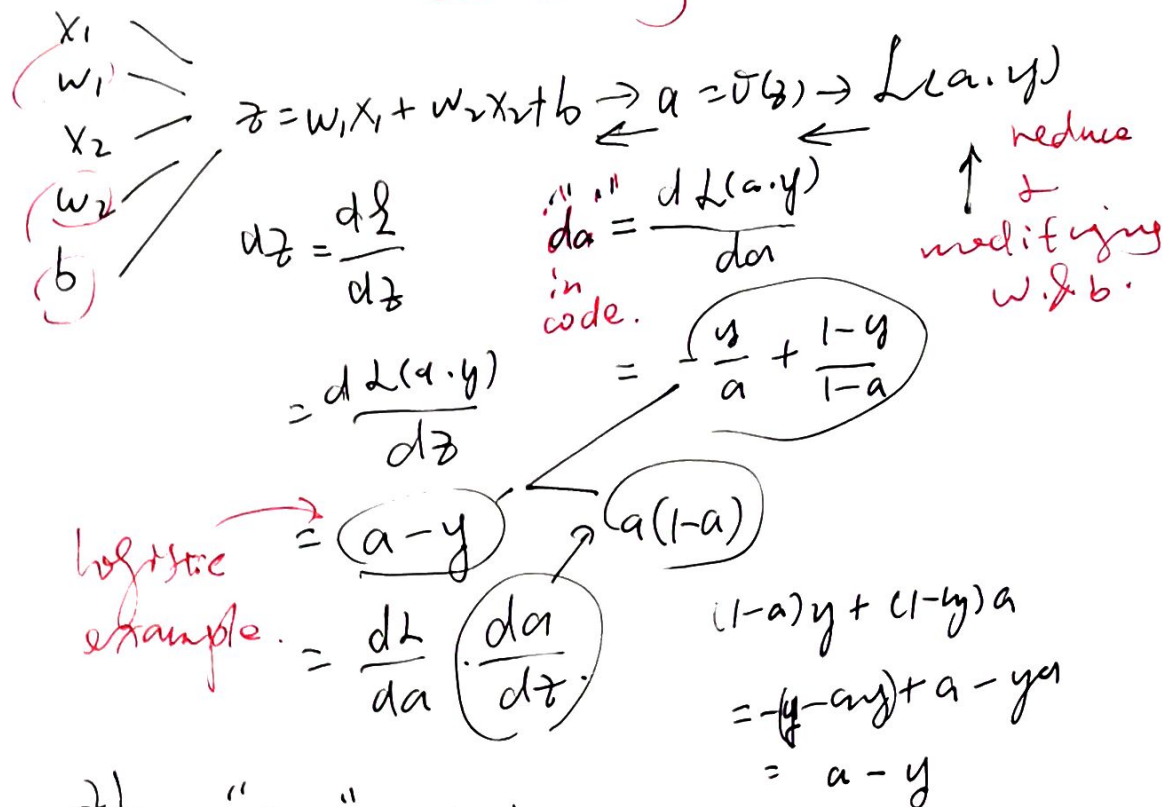 x₁
w₁
x₂
w₂
b
z = w₁x₁ + w₂x₂ + b → a = σ(z) → L(a, y)
←
←
↑
reduce
&
modifying
w. & b.
dz = dL/dz
"da" = dL(a, y)/da
in
code.
= dL(a, y)/dz
= -y/a + (1-y)/(1-a)
logistic
example.
= a - y
a(1-a)
= dL/da · da/dz.
(1-a)y + (1-y)a
= -(y-ay) + a - ya
= a - y